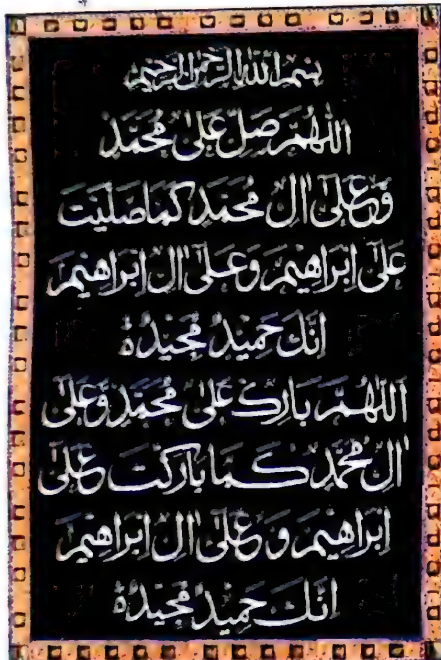 بسم الله الرحمن الرحيم
اللهم صل على محمد
وعلى ال محمد كما صليت
على ابراهيم وعلى ال ابراهيم
انك حميد مجيد
اللهم بارك على محمد وعلى
ال محمد كما باركت على
ابراهيم وعلى ال ابراهيم
انك حميد مجيد